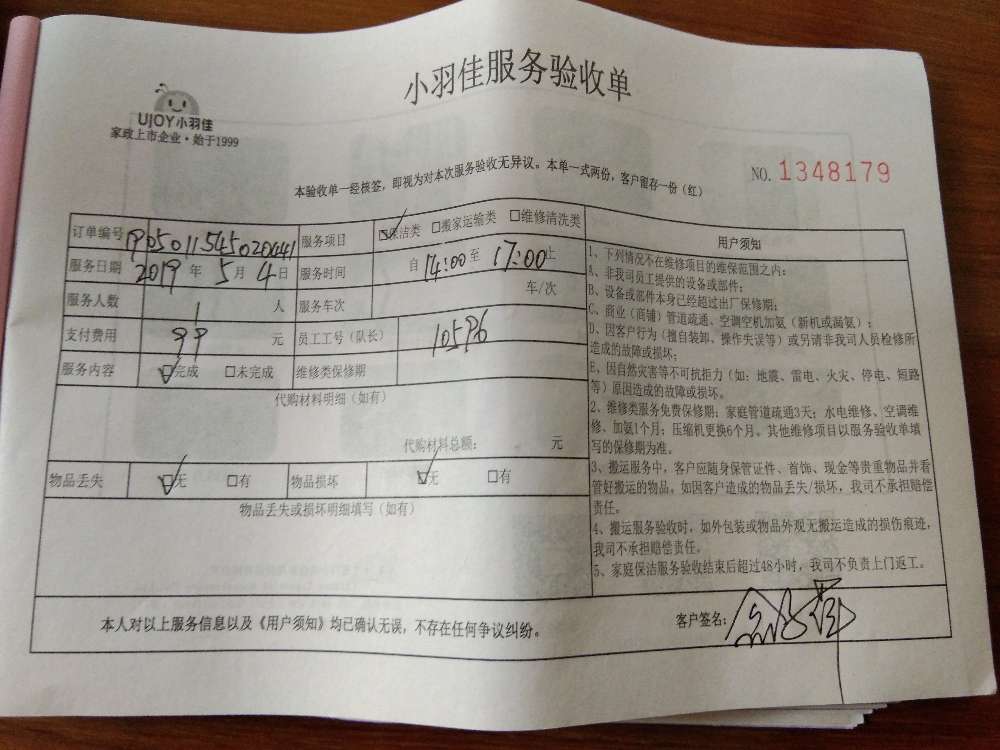 小羽佳服务验收单
UJOY小羽佳
家政上市企业·始于1999
NO. 1348179
本验收单一经核签，即视为对本次服务验收无异议。本单一式两份，客户留存一份（红）
订单编号 服务项目 ☑保洁类 □搬家运输类 □维修清洗类
服务日期 2019 年 5 月 4 日 服务时间 自 14:00 至 17:00 止
服务人数 1 人 服务车次 车/次
支付费用 99 元 员工工号（队长） 10596
服务内容 ☑完成 □未完成 维修类保修期
代购材料明细（如有）
代购材料总额： 元
物品丢失 ☑无 □有 物品损坏 ☑无 □有
物品丢失或损坏明细填写（如有）
用户须知
1、下列情况不在维修项目的维保范围之内：
A、非我司员工提供的设备或部件；
B、设备或部件本身已经超过出厂保修期；
C、商业（商铺）管道疏通、空调空机加氟（新机或漏氟）；
D、因客户行为（擅自装卸、操作失误等）或另请非我司人员检修所
造成的故障或损坏；
E、因自然灾害等不可抗拒力（如：地震、雷电、火灾、停电、短路
等）原因造成的故障或损坏。
2、维修类服务免费保修期：家庭管道疏通3天；水电维修、空调维
修、加氟1个月；压缩机更换6个月。其他维修项目以服务验收单填
写的保修期为准。
3、搬运服务中，客户应随身保管证件、首饰、现金等贵重物品并看
管好搬运的物品，如因客户造成的物品丢失/损坏，我司不承担赔偿
责任。
4、搬运服务验收时，如外包装或物品外观无搬运造成的损伤痕迹，
我司不承担赔偿责任。
5、家庭保洁服务验收结束后超过48小时，我司不负责上门返工。
本人对以上服务信息以及《用户须知》均已确认无误，不存在任何争议纠纷。
客户签名：